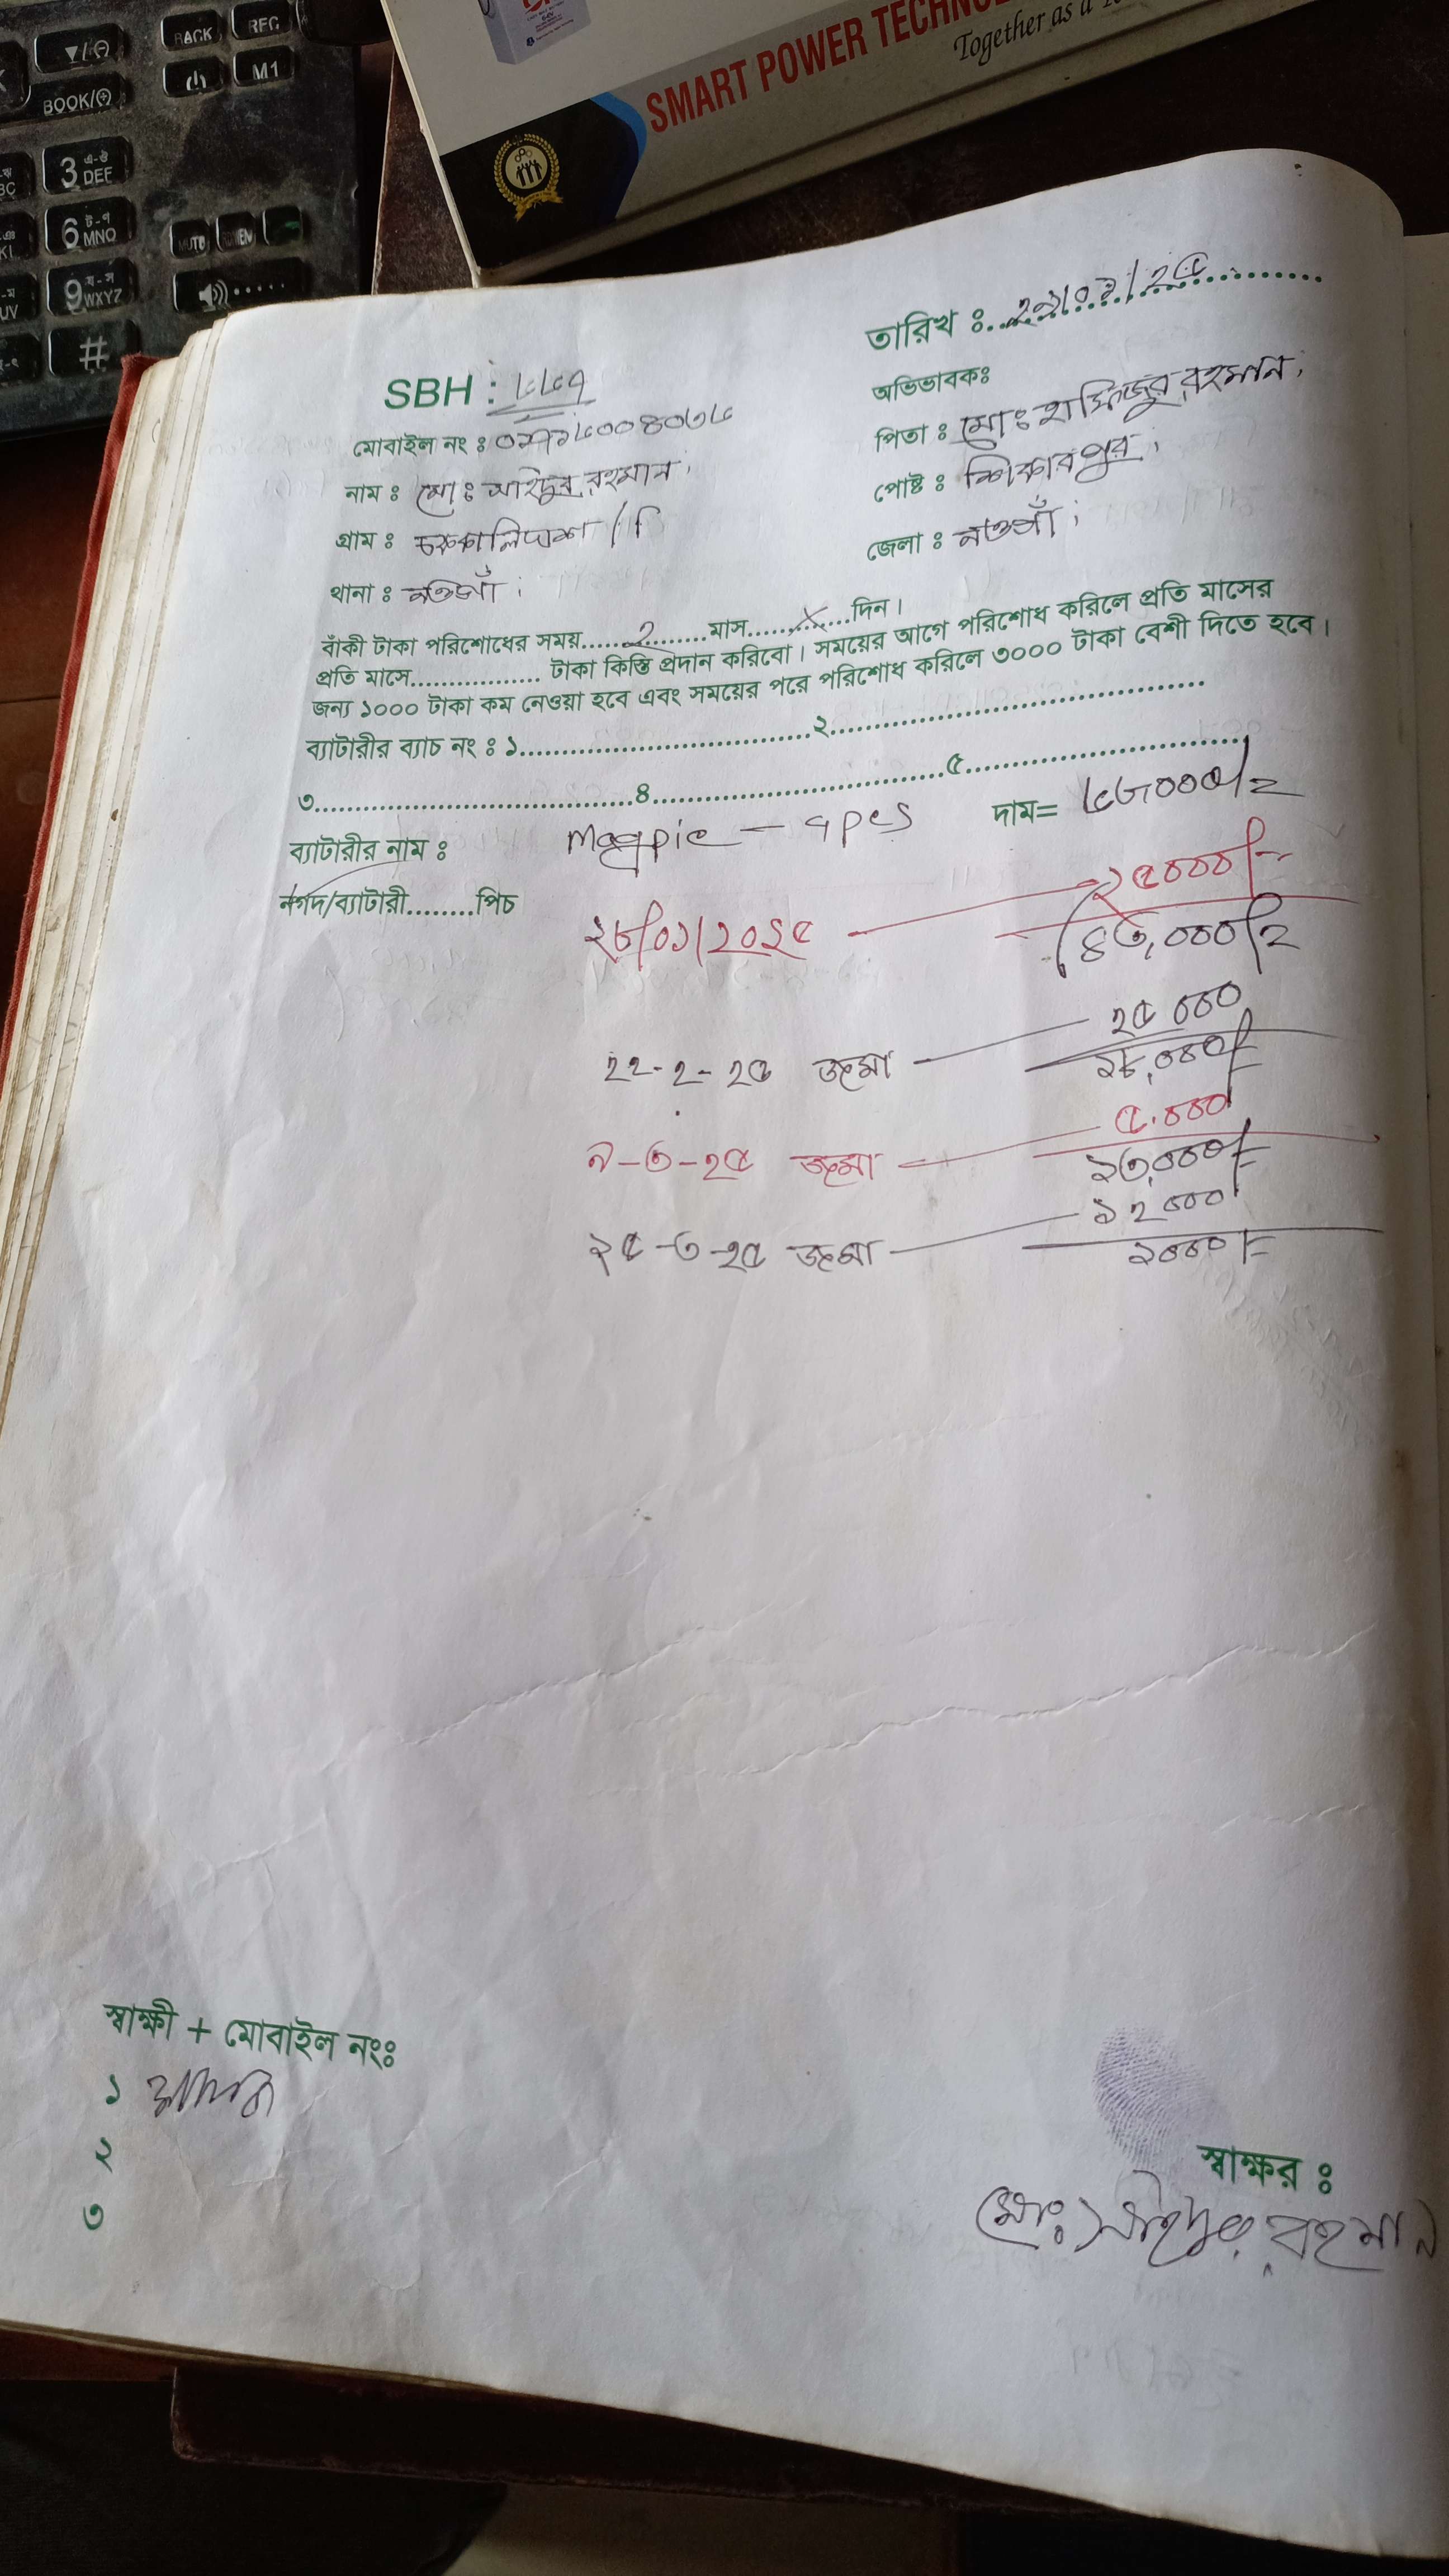 BACK
REC
▼/⊖
M1
BOOK/⊕
3 এ-ঔ DEF
6 ট-ণ MNO
9 য-স WXYZ
#
SMART POWER TECHNO
Together as a
তারিখ ঃ
SBH : ৮৮৭
অভিভাবকঃ
মোবাইল নং ঃ
পিতা ঃ মোঃ হাফিজুর রহমান
নাম ঃ মোঃ সাইদুর রহমান
পোষ্ট ঃ শিকারপুর
গ্রাম ঃ
জেলা ঃ নওগাঁ
থানা ঃ নওগাঁ
বাঁকী টাকা পরিশোধের সময়......২........মাস.......X....দিন।
প্রতি মাসে................. টাকা কিস্তি প্রদান করিবো। সময়ের আগে পরিশোধ করিলে প্রতি মাসের
জন্য ১০০০ টাকা কম নেওয়া হবে এবং সময়ের পরে পরিশোধ করিলে ৩০০০ টাকা বেশী দিতে হবে।
ব্যাটারীর ব্যাচ নং ঃ ১..............................২..............................
৩..............................৪..............................৫..............................
ব্যাটারীর নাম ঃ Magpie — দাম= ৬৮০০০/=
নগদ/ব্যাটারী........পিচ
২৮/০১/২০২৫ — ২৫০০০/-
৪৩,০০০/=
২২-২-২৫ জমা — ২৫০০০
১৮,০০০/=
৯-৩-২৫ জমা — ৫,০০০
১৩,০০০/=
১৫-৩-২৫ জমা — ১২০০০
১০০০/=
স্বাক্ষী + মোবাইল নংঃ
১
২
৩
স্বাক্ষর ঃ
মোঃ সাইদুর রহমান